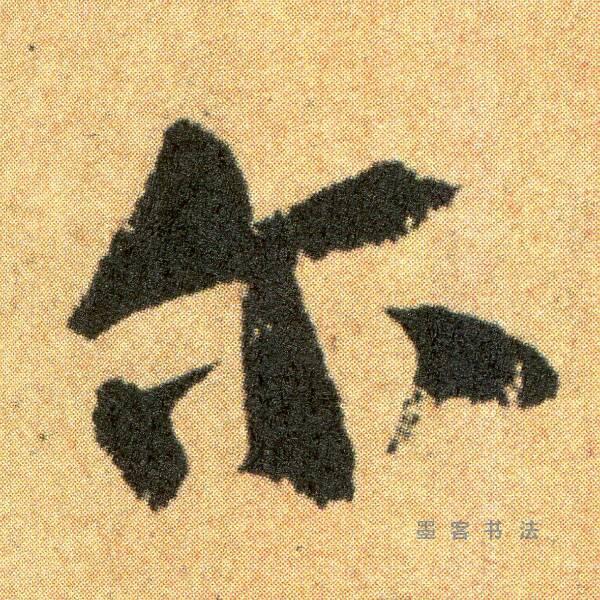 尔
墨客书法